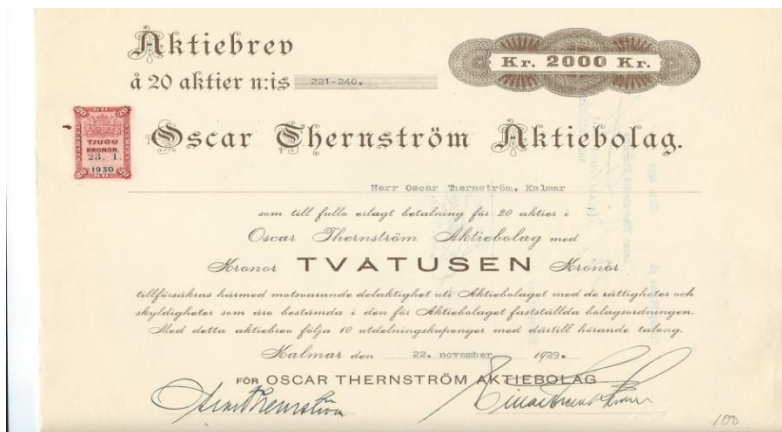 Aktiebrev
à 20 aktier n:is 221-240.
Kr. 2000 Kr.
TJUGU
KRONOR
23. 1.
1930
Oscar Thernström Aktiebolag.
Herr Oscar Thernström, Kalmar
som till fullo erlagt betalning för 20 aktier i
Oscar Thernström Aktiebolag med
Kronor TVATUSEN Kronor
tillförsäkras härmed motsvarande delaktighet uti Aktiebolaget med de rättigheter och
skyldigheter som äro bestämda i den för Aktiebolaget fastställda bolagsordningen.
Med detta aktiebrev följa 10 utdelningskuponger med därtill hörande talong.
Kalmar den 22. november 1929.
FÖR OSCAR THERNSTRÖM AKTIEBOLAG
Oscar Thernström
100